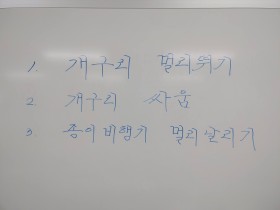 1. 개구리 멀리뛰기
2. 개구리 싸움
3 종이비행기 멀리날리기